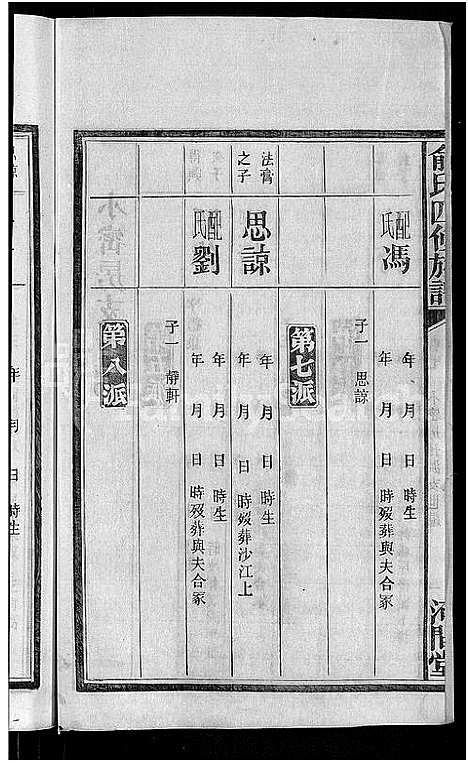 俞氏四修族譜
河間堂
配馮氏
年 月 日 時生
年 月 日 時歿葬與夫合冢
子一 思諒
第七派
法膏之子
思諒
年 月 日 時生
年 月 日 時歿葬沙江上
配劉氏
年 月 日 時生
年 月 日 時歿葬與夫合冢
子一 靜軒
第八派
年 月 日 時生